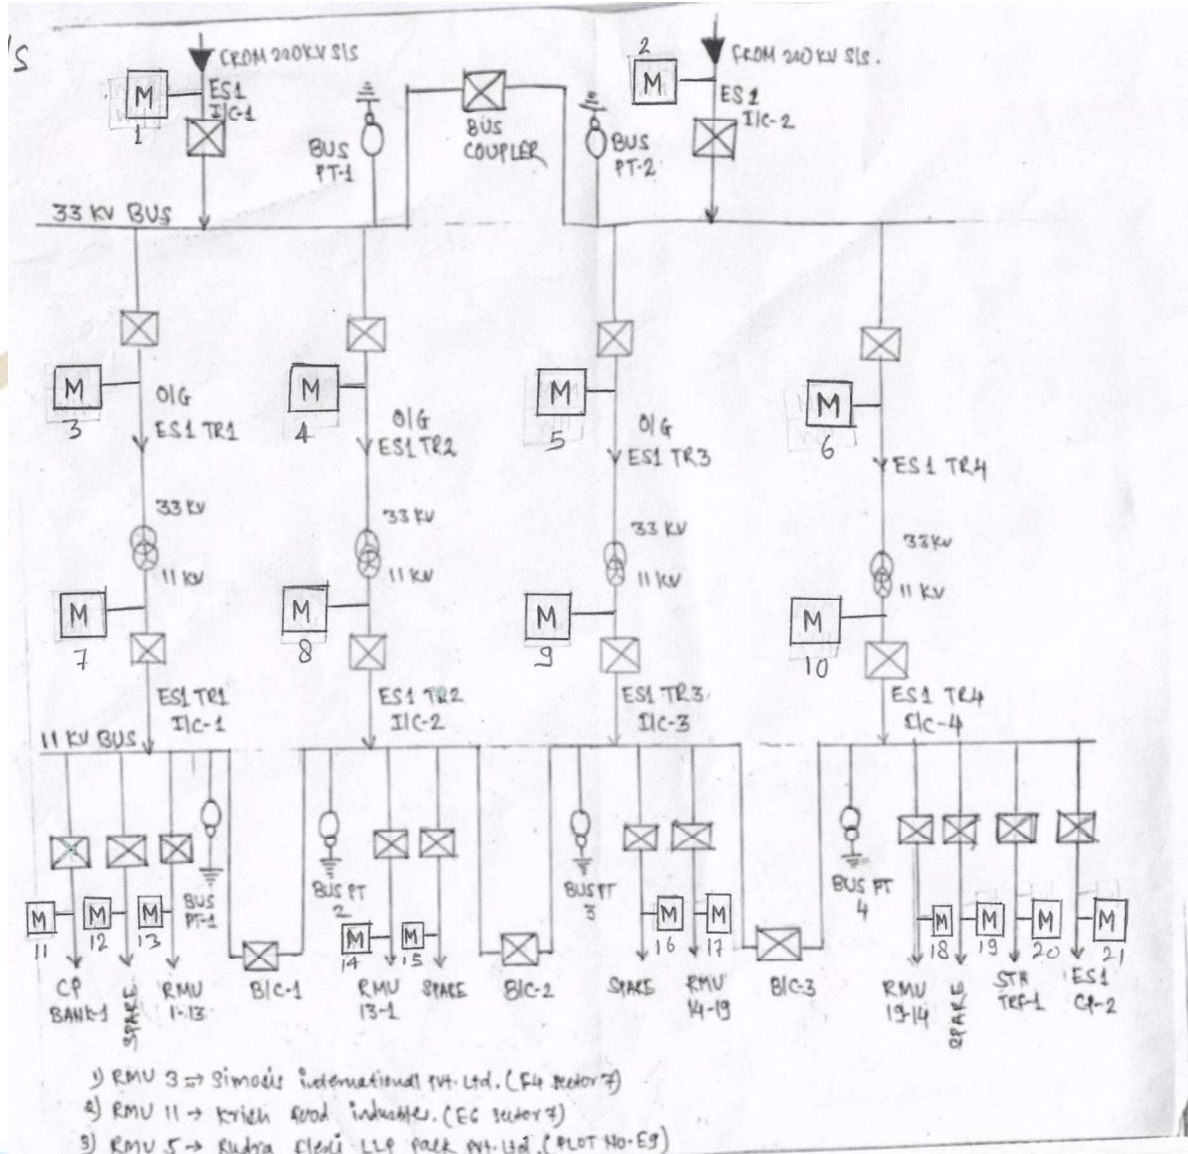 S
FROM 220KV S/S
FROM 220 KV S/S.
M
1
ES1
I/C-1
BUS
PT-1
BUS
COUPLER
2
M
ES1
I/C-2
BUS
PT-2
33 KV BUS
M
3
O/G
ES1 TR1
M
4
O/G
ES1 TR2
M
5
O/G
ES1 TR3
M
6
ES1 TR4
33 KV
11 KV
33 KV
11 KV
33 KV
11 KV
33KV
11 KV
M
7
M
8
M
9
M
10
ES1 TR1
I/C-1
ES1 TR2
I/C-2
ES1 TR3
I/C-3
ES1 TR4
I/C-4
11 KV BUS
M
11
M
12
M
13
BUS
PT-1
BUS PT
2
M
14
M
15
BUS PT
3
M
16
M
17
BUS PT
4
M
18
M
19
M
20
M
21
CP
BANK-1
SPARE
RMU
1-13
B/C-1
RMU
13-1
SPARE
B/C-2
SPARE
RMU
14-19
B/C-3
RMU
19-14
SPARE
STN
TRF-1
ES1
CP-2
1) RMU 3 → Simosis international Pvt. Ltd. (E4 Sector 7)
2) RMU 11 → Krish food industries. (E6 Sector 7)
3) RMU 5 → Rudra Flexi LLP Pack Pvt. Ltd. (PLOT NO-E9)